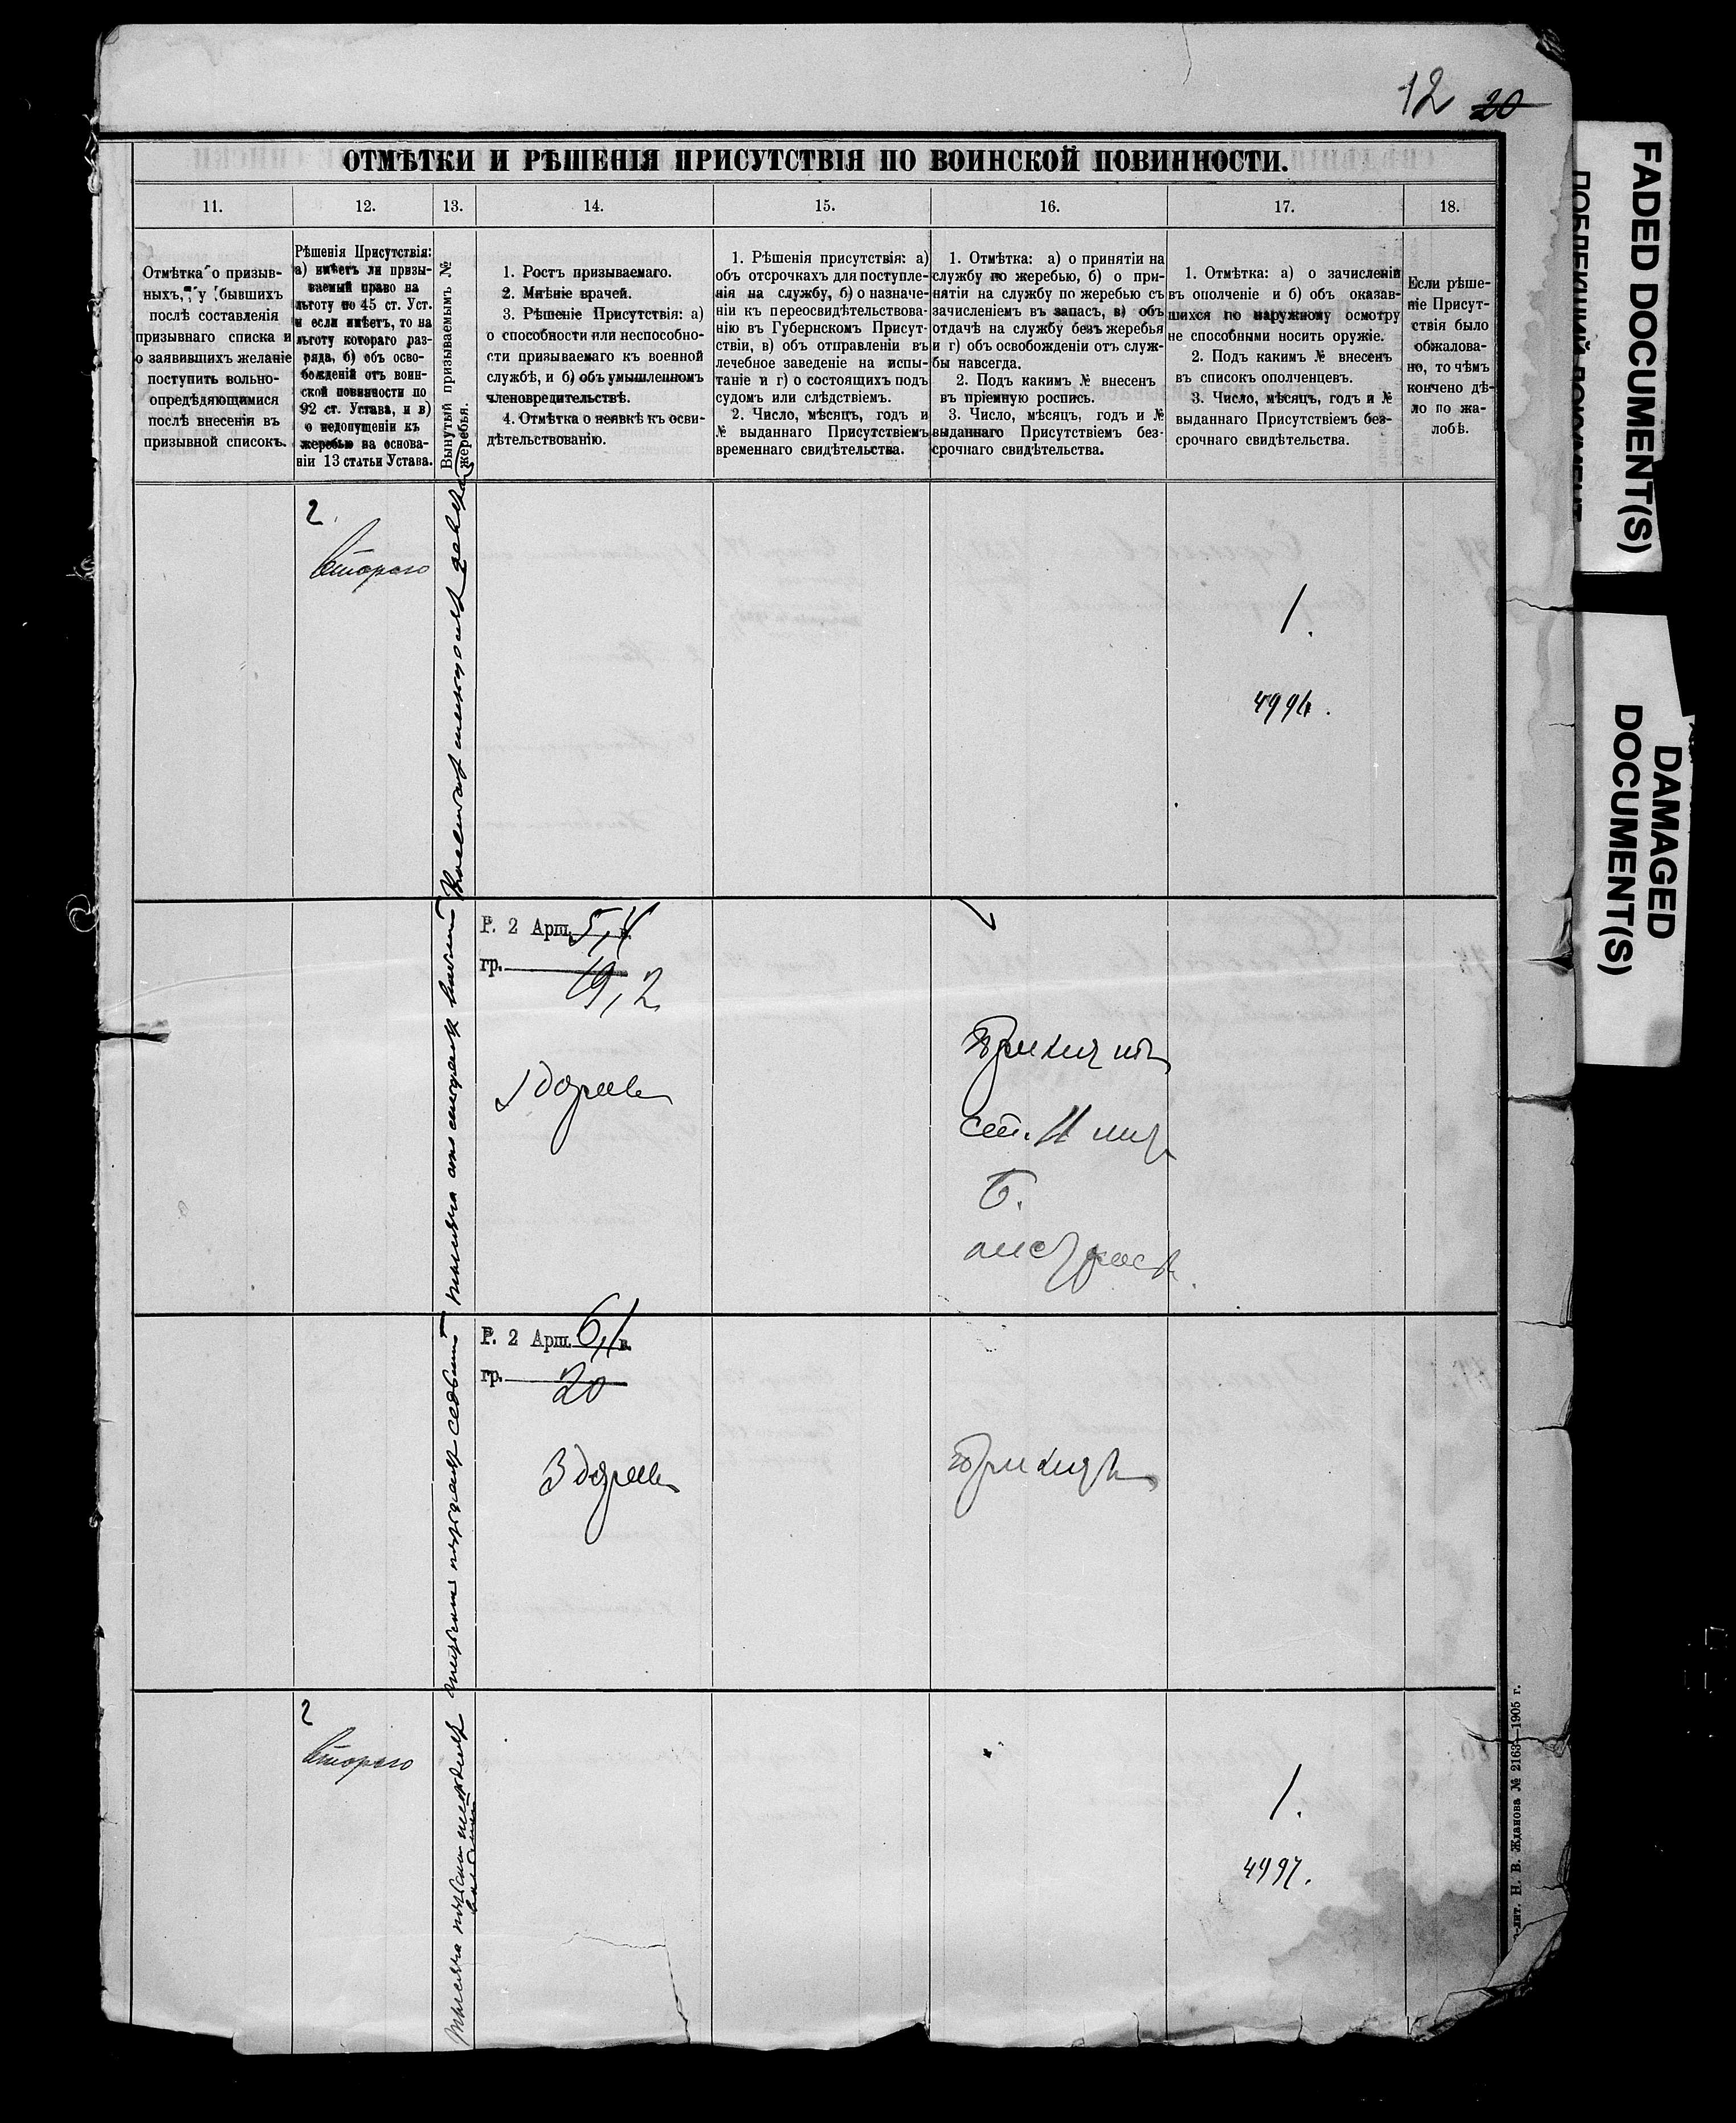 12 20
ОТМѢТКИ И РѢШЕНІЯ ПРИСУТСТВІЯ ПО ВОИНСКОЙ ПОВИННОСТИ.
11.
12.
13.
14.
15.
16.
17.
18.
Отмѣтка о призыв-
ныхъ, у бывшихъ
послѣ составленія
призывнаго списка и
о заявившихъ желаніе
поступить вольно-
опредѣдяющимися
послѣ внесенія въ
призывной списокъ.
Рѣшенія Присутствія:
а) имѣетъ ли призы-
ваемый право на
льготу по 45 ст. Уст.
и если имѣетъ, то на
льготу котораго раз-
ряда, б) объ осво-
божденіи отъ воин-
ской повинности по
92 ст. Устава, и в)
о недопущеніи къ
жеребью на основа-
ніи 13 статьи Устава.
Вынутый призываемымъ №
жеребья.
1. Ростъ призываемаго.
2. Мнѣніе врачей.
3. Рѣшеніе Присутствія: а)
о способности или неспособно-
сти призываемаго къ военной
службѣ, и б) объ умышленномъ
членовредительствѣ.
4. Отмѣтка о неявкѣ къ осви-
дѣтельствованію.
1. Рѣшенія присутствія: а)
объ отсрочкахъ для поступле-
нія на службу, б) о назначе-
ніи къ переосвидѣтельствова-
нію въ Губернскомъ Присут-
ствіи, в) объ отправленіи въ
лечебное заведеніе на испы-
таніе и г) о состоящихъ подъ
судомъ или слѣдствіемъ.
2. Число, мѣсяцъ, годъ и
№ выданнаго Присутствіемъ
временнаго свидѣтельства.
1. Отмѣтка: а) о принятіи на
службу по жеребью, б) о при-
нятіи на службу по жеребью съ
зачисленіемъ въ запасъ, в) объ
отдачѣ на службу безъ жеребья
и г) объ освобожденіи отъ служ-
бы навсегда.
2. Подъ какимъ № внесенъ
въ пріемную роспись.
3. Число, мѣсяцъ, годъ и №
выданнаго Присутствіемъ без-
срочнаго свидѣтельства.
1. Отмѣтка: а) о зачисленіи
въ ополченіе и б) объ оказав-
шихся по наружному осмотру
не способными носить оружіе.
2. Подъ какимъ № внесенъ
въ списокъ ополченцевъ.
3. Число, мѣсяцъ, годъ и №
выданнаго Присутствіемъ без-
срочнаго свидѣтельства.
Если рѣше-
ніе Присут-
ствія было
обжалова-
но, то чѣмъ
кончено дѣ-
ло по жа-
лобѣ.
2.
Второго
1.
4996.
Р. 2 Арш. 5,4 в.
гр. 19,2
Здоровъ
Принятъ
Б.
Р. 2 Арш. 6,1 в.
гр. 20
Здоровъ
Принятъ
2
Второго
1.
4997.
лит. Н. В. Жданова № 2163—1905 г.
FADED DOCUMENT(S)
DAMAGED
DOCUMENT(S)